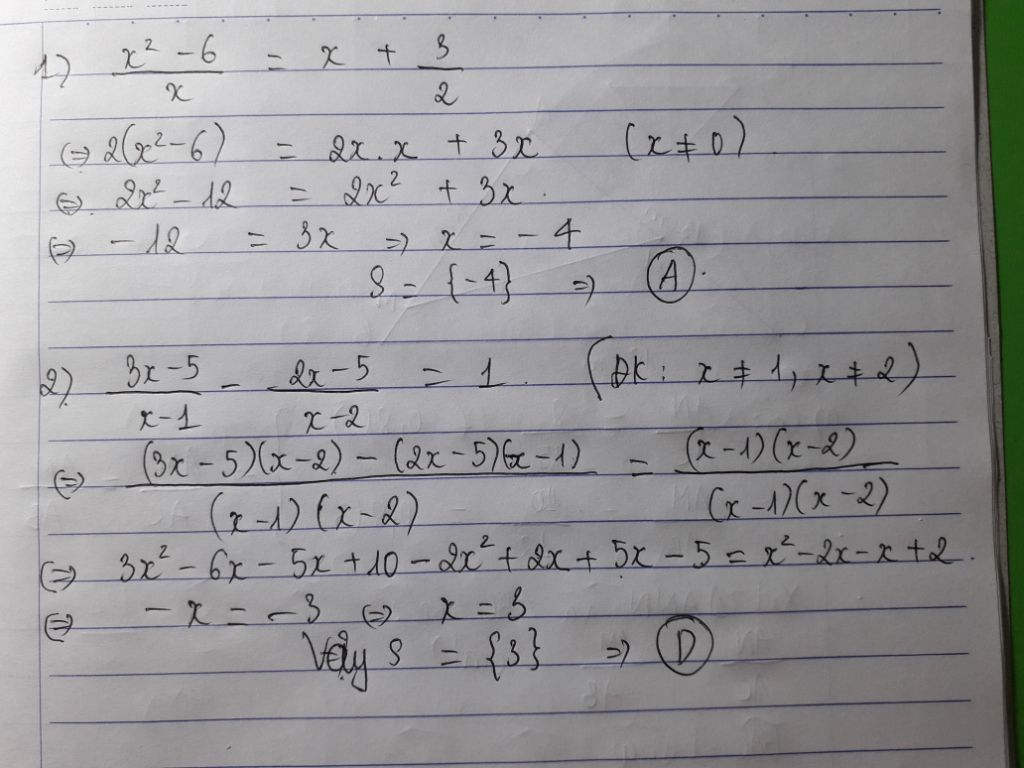 1) (x² - 6)/x = x + 3/2
⇔ 2(x² - 6) = 2x.x + 3x (x ≠ 0)
⇔ 2x² - 12 = 2x² + 3x.
⇔ - 12 = 3x ⇒ x = - 4
S = {-4} ⇒ A.
2) (3x - 5)/(x - 1) - (2x - 5)/(x - 2) = 1. (ĐK: x ≠ 1, x ≠ 2)
⇔ ((3x - 5)(x - 2) - (2x - 5)(x - 1))/((x - 1)(x - 2)) = ((x - 1)(x - 2))/((x - 1)(x - 2))
⇔ 3x² - 6x - 5x + 10 - 2x² + 2x + 5x - 5 = x² - 2x - x + 2.
⇔ - x = - 3 ⇔ x = 3
Vậy S = {3} ⇒ D